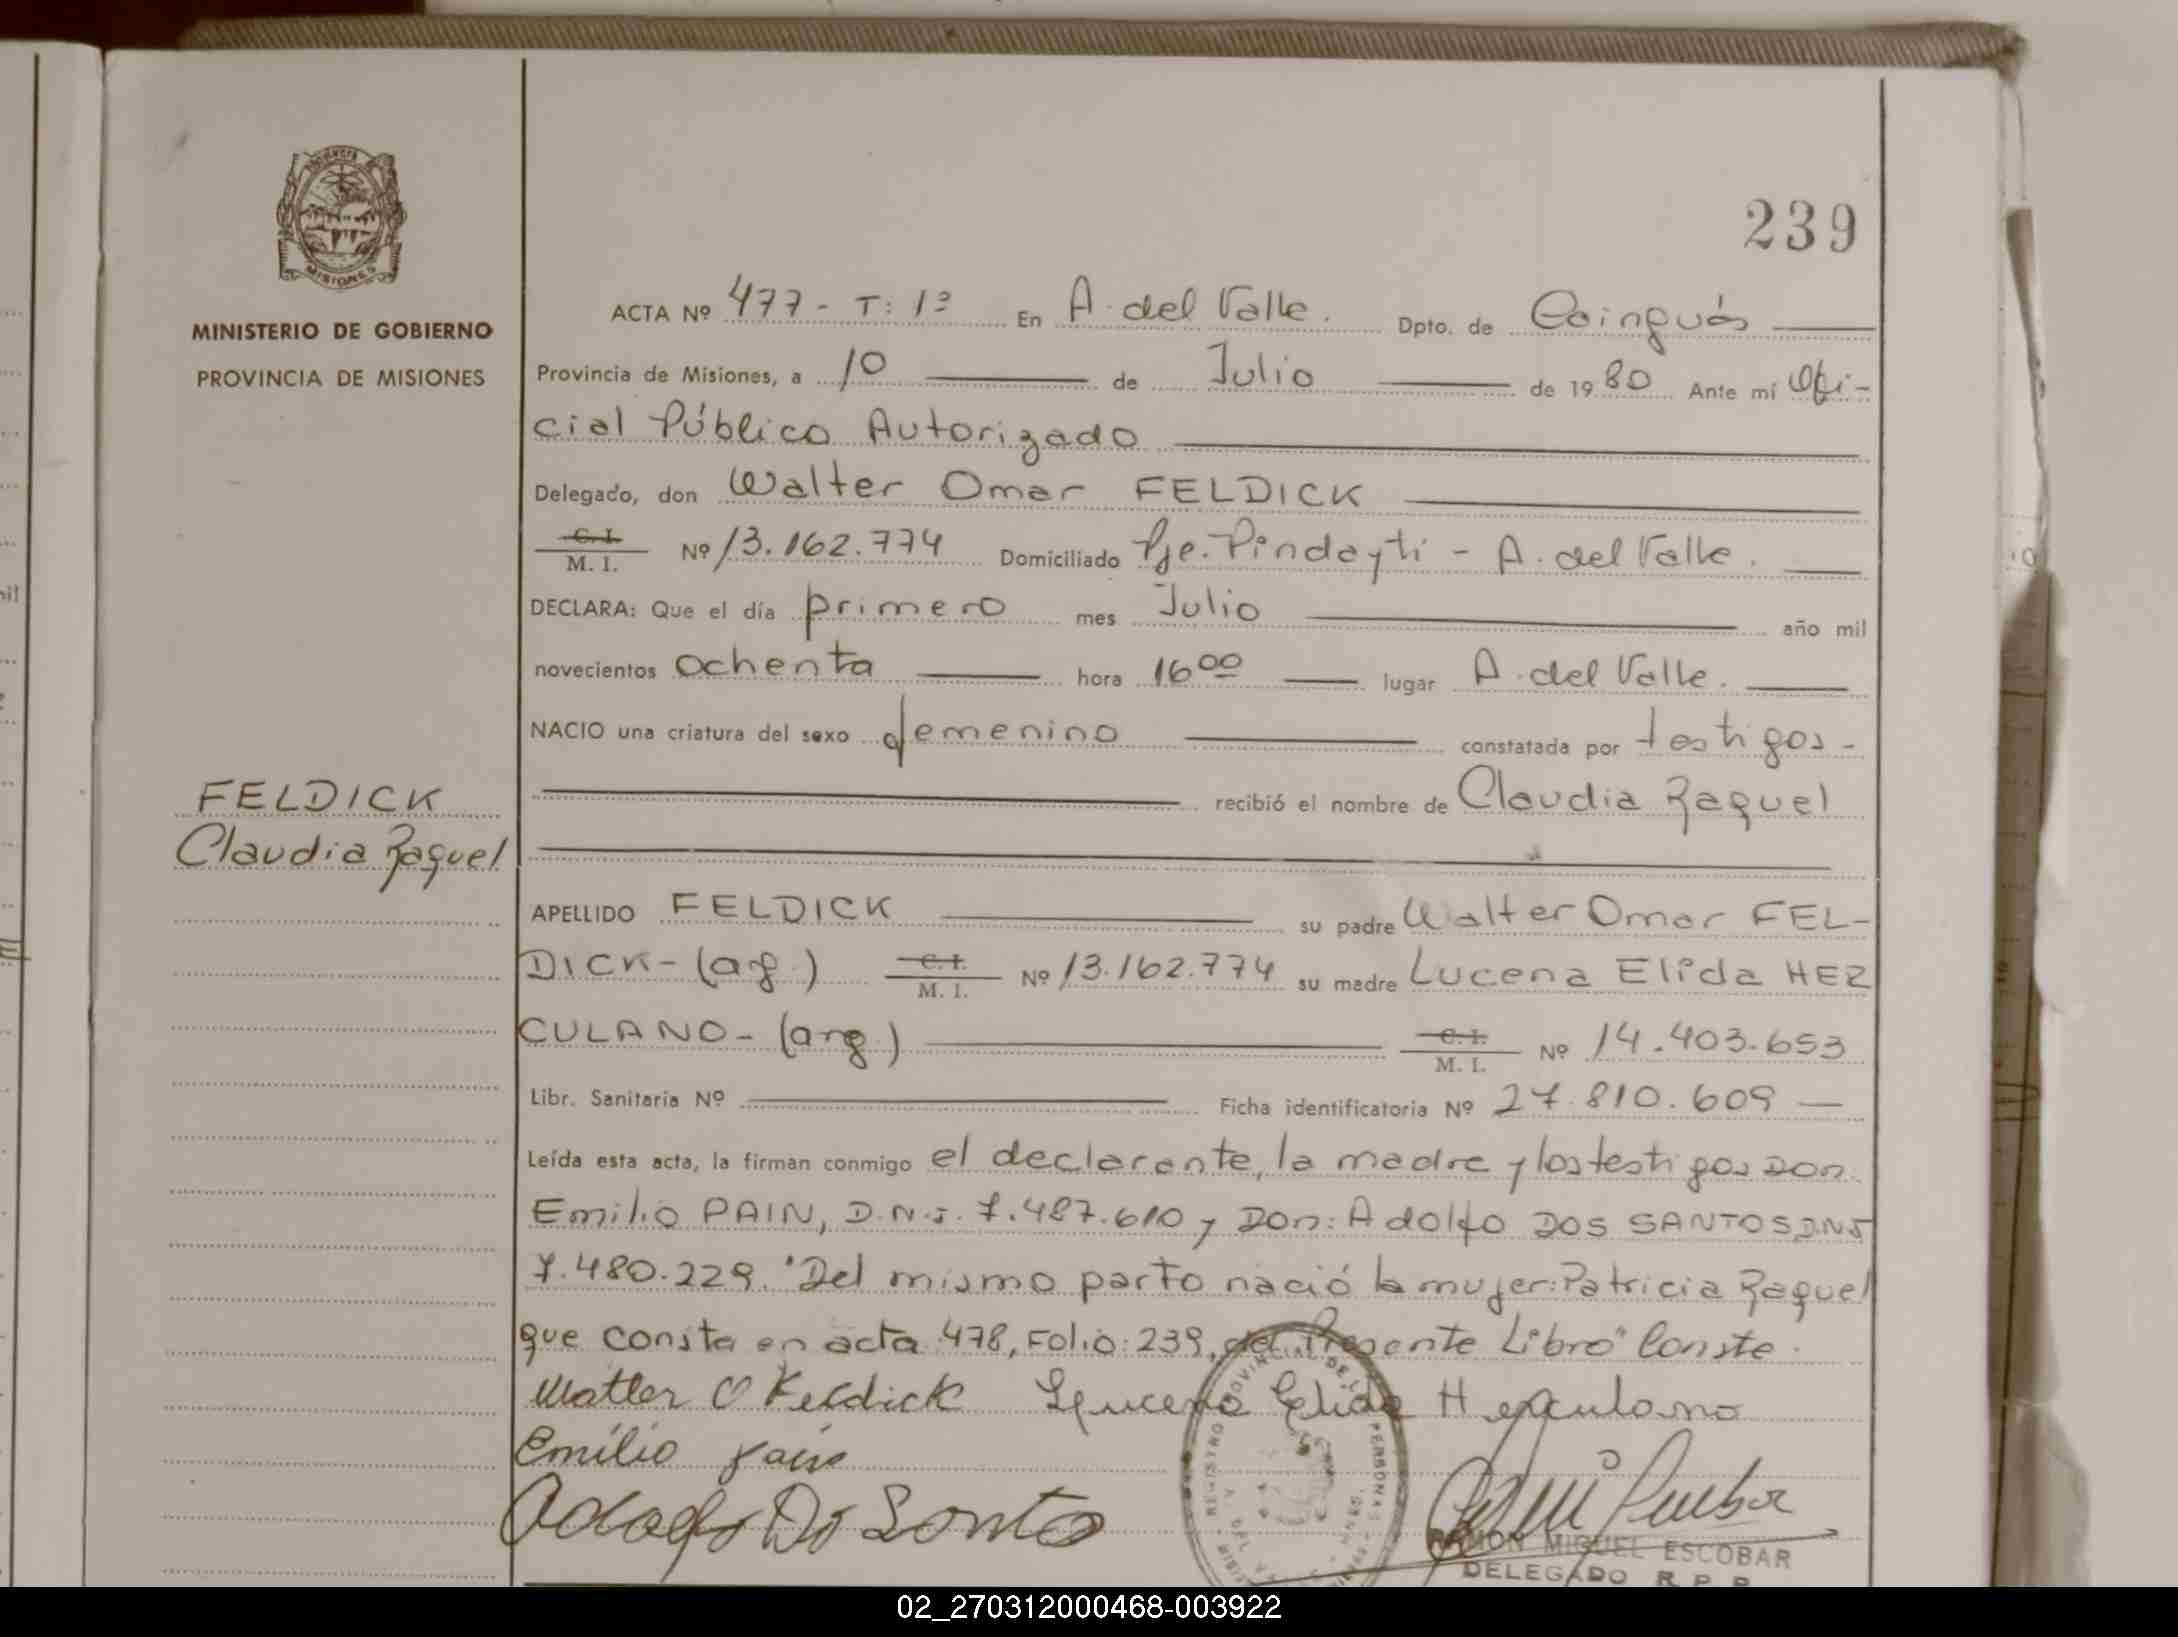 239
MISIONES
MINISTERIO DE GOBIERNO
PROVINCIA DE MISIONES
ACTA Nº 477 - T: 1º En A. del Valle. Dpto. de Cainguás
Provincia de Misiones, a 10 de Julio de 1980 Ante mí Ofi-
cial Público Autorizado
Delegado, don Walter Omar FELDICK
C. I.
M. I. Nº 13.162.774 Domiciliado Pje. Pindayti - A. del Valle.
DECLARA: Que el día primero mes Julio año mil
novecientos ochenta hora 16 00 lugar A. del Valle.
NACIO una criatura del sexo femenino constatada por testigos -
recibió el nombre de Claudia Raquel
FELDICK
Claudia Raquel
APELLIDO FELDICK su padre Walter Omar FEL-
DICK - (arg.) C. I. M. I. Nº 13.162.774 su madre Lucena Elida HER
CULANO - (arg.) C. I. M. I. Nº 14.403.653
Libr. Sanitaria Nº Ficha identificatoria Nº 27.810.609
Leída esta acta, la firman conmigo el declarante, la madre y los testigos Don.
Emilio PAIN, D.N.I. 7.487.610 y Don: Adolfo DOS SANTOS D.N.I
7.480.229. "Del mismo parto nació la mujer: Patricia Raquel
que consta en acta 478, Folio: 239, del Presente Libro" Conste.
Walter O Feldick Lucena Elida Herculano
Emilio Pain
RAMON MIGUEL ESCOBAR
DELEGADO R. P. P.
02_270312000468-003922